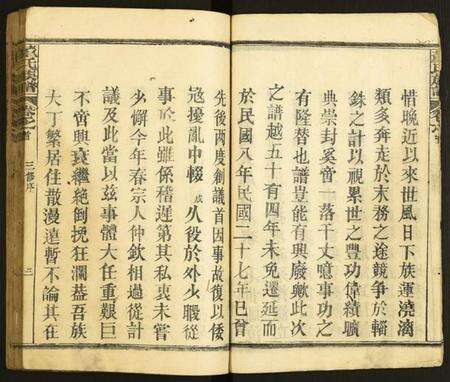 惜晚近以來世風日下族運澆漓
類多奔走於末務之途競爭於輜
銖之計以視累世之豐功偉績職
典崇封奚啻一落千丈噫事功之
有隆替也譜豈能有興廢歟此次
之譜越五十有四年未免遷延而
於民國八年民國二十七年已曾
先後兩度創議首因事故復以倭
寇擾亂中輟 或 久役於外少暇從
事於此雖係稽遲第其私衷未嘗
少懈今年春宗人仲欽相過從計
議及此當以茲事體大任重艱巨
不啻興衰繼絕倒挽狂瀾蓋吾族
大丁繁居住散漫遠暫不論其在
氏族譜
卷首
三修序
二